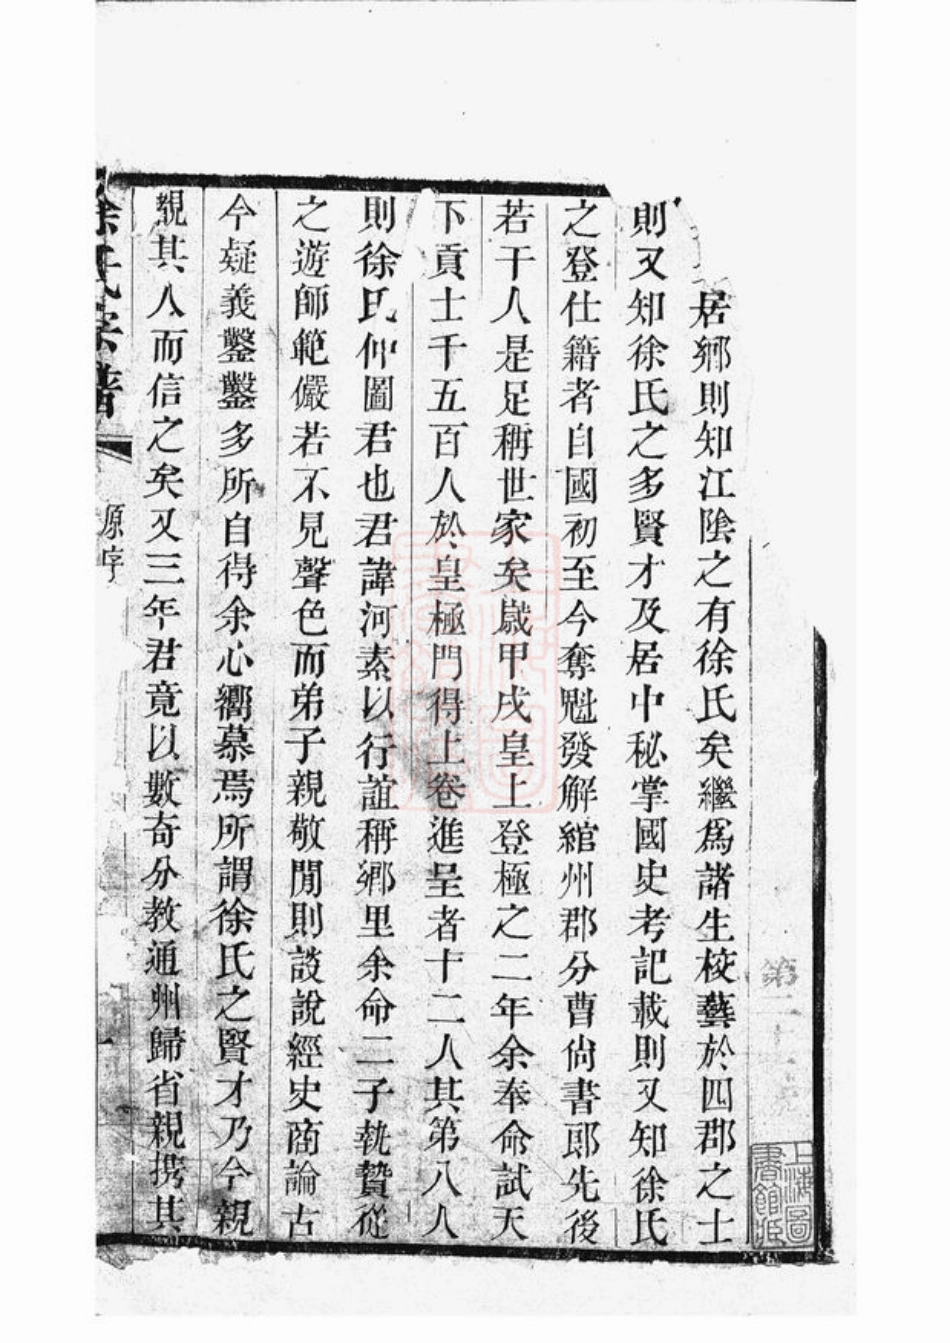 第二十
上海圖書館藏
居鄉則知江陰之有徐氏矣繼爲諸生校藝於四郡之士
則又知徐氏之多賢才及居中秘掌國史考記載則又知徐氏
之登仕籍者自國初至今奪魁發解綰州郡分曹尙書郎先後
若干人是足稱世家矣歲甲戌皇上登極之二年余奉命試天
下貢士千五百人於皇極門得上卷進呈者十二人其第八人
則徐氏仲圖君也君諱河素以行誼稱鄉里余命二子執贄從
之遊師範儼若不見聲色而弟子親敬閒則談說經史商論古
今疑義鑿鑿多所自得余心嚮慕焉所謂徐氏之賢才乃今親
覩其人而信之矣又三年君竟以數奇分教通州歸省親携其
徐氏宗譜
原序
一